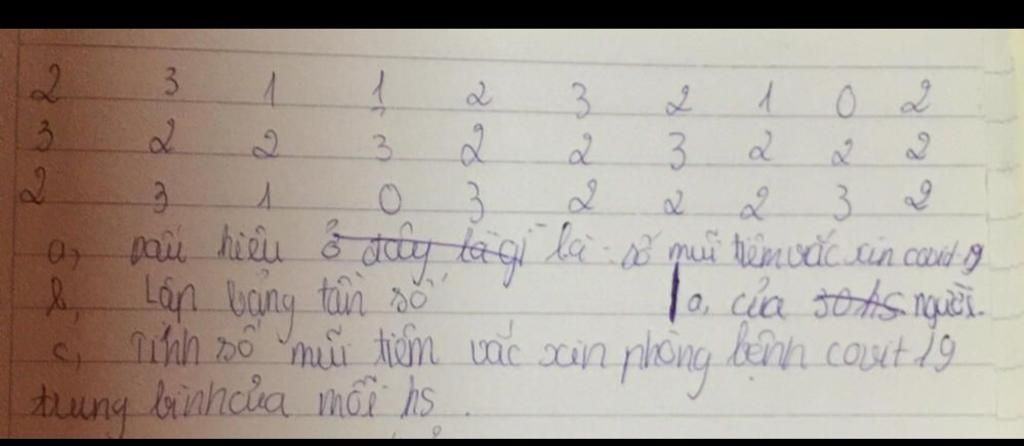 2 3 1 1 2 3 2 1 0 2
3 2 2 3 2 2 3 2 2 2
2 3 1 0 3 2 2 2 3 2
a, Dấu hiệu ở đây là gì là : số mũi tiêm vắc xin covid-19
b, Lập bảng tần số a, của 30 hs người.
c, Tính số mũi tiêm vắc xin phòng bệnh covit 19
trung bình của mỗi hs.